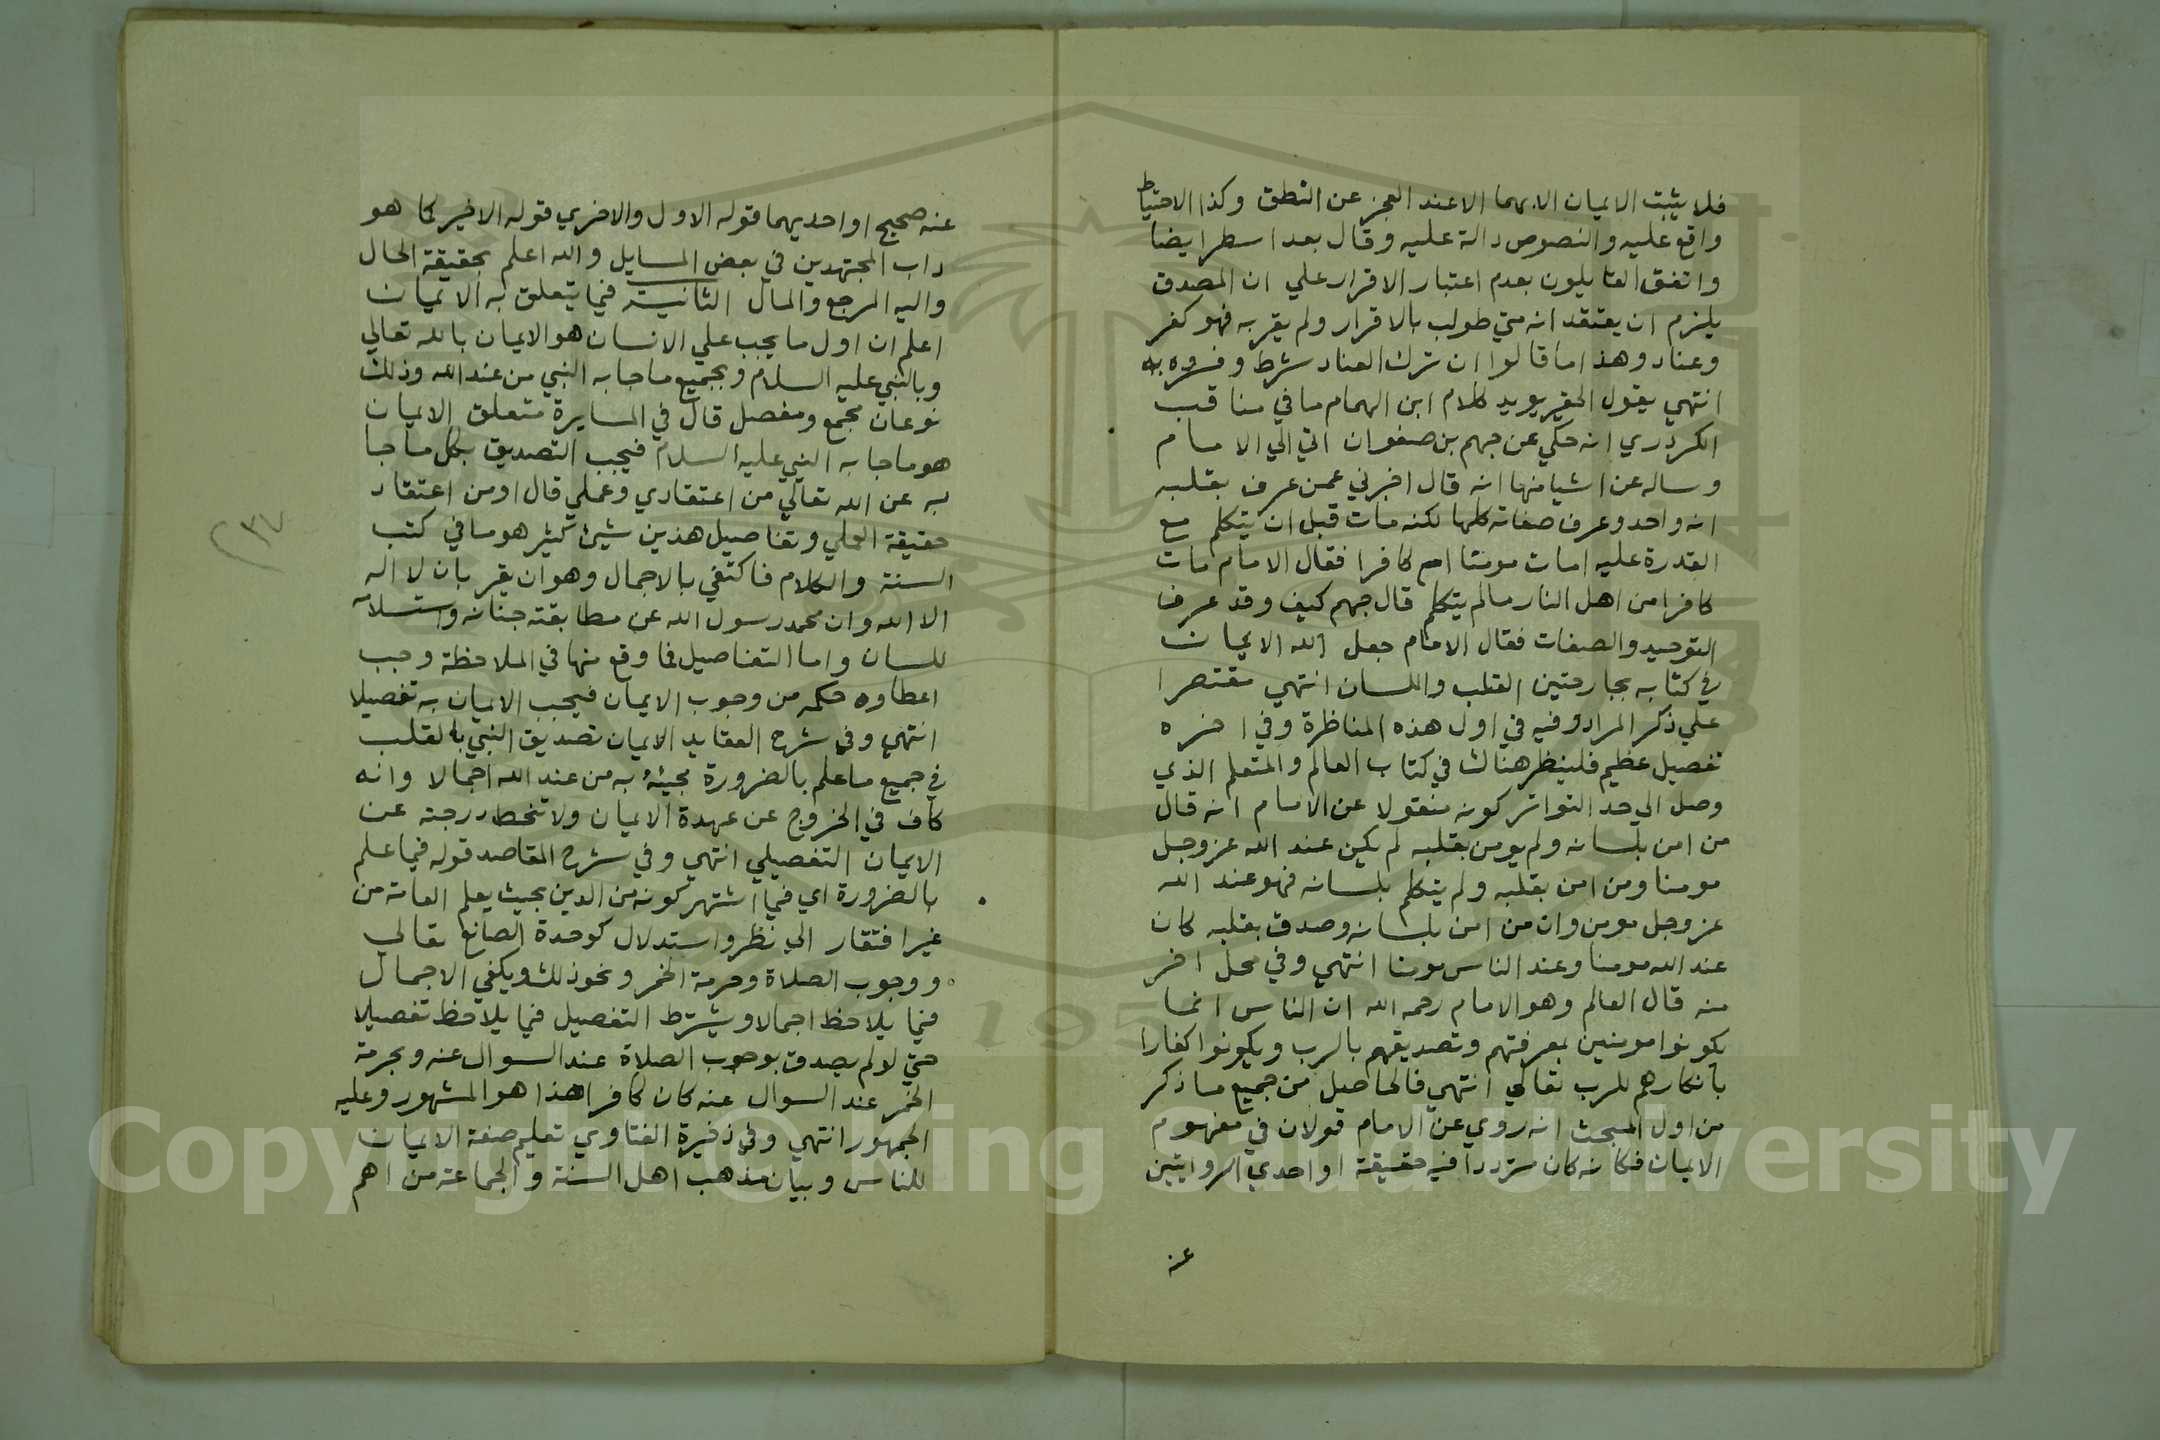 فلا يثبت الايمان الا بهما الا عند العجز عن النطق وكذا الاحتياط
واقع عليه والنصوص دالة عليه وقال بعد اسطر ايضا
واتفق القايلون بعدم اعتبار الاقرار علي ان المصدق
يلزم ان يعتقد انه متي طولب بالاقرار ولم يقر به فهو كفر
وعناد وهذا ما قالوا ان ترك العناد شرط وفسروه به
انتهي يقول الحقير يويد كلام ابن الهمام ما في مناقب
الكردري انه حكي عن جهم بن صفوان اتي الي الامام
وساله عن اشيا منها انه قال اخبرني عمن عرف بقلبه
انه واحد وعرف صفاته كلها لكنه مات قبل ان يتكلم مع
القدرة عليه امات مومنا ام كافرا فقال الامام مات
كافرا من اهل النار ما لم يتكلم قال جهم كيف وقد عرف
التوحيد والصفات فقال الامام جعل الله الايمان
في كتابه بجارحتين القلب واللسان انتهي مقتصرا
علي ذكر المراد وفيه في اول هذه المناظرة وفي اخره
تفصيل عظيم فلينظر هناك في كتاب العالم والمتعلم الذي
وصل الي حد التواتر كونه منقولا عن الامام انه قال
من امن بلسانه ولم يومن بقلبه لم يكن عند الله عز وجل
مومنا ومن امن بقلبه ولم يتكلم بلسانه فهو عند الله
عز وجل مومن وان من امن بلسانه وصدق بقلبه كان
عند الله مومنا وعند الناس مومنا انتهي وفي محل اخر
منه قال العالم وهو الامام رحمه الله ان الناس انما
يكونوا مومنين بمعرفتهم وتصديقهم بالرب ويكونوا كفارا
بانكارهم للرب تعالي انتهي فالحاصل من جميع ما ذكر
من اول المبحث انه روي عن الامام قولان في مفهوم
الايمان فكانه كان مترددا فيه حقيقة او احدي الروايتين
عنه
عنه صحيح او احديهما قوله الاول والاخري قوله الاخير كما هو
داب المجتهدين في بعض المسايل والله اعلم بحقيقة الحال
واليه المرجع والمال الثانية فيما يتعلق به الايمان
اعلم ان اول ما يجب علي الانسان هو الايمان بالله تعالي
وبالنبي عليه السلام وبجميع ما جا به النبي من عند الله وذلك
نوعان مجمع ومفصل قال في المسايرة متعلق الايمان
هو ما جا به النبي عليه السلام فيجب التصديق بكل ما جا
به عن الله تعالي من اعتقادي وعملي قال او من اعتقاد
حقيقة العملي وتفاصيل هذين شيئ كثير هو ما في كتب
السنة والكلام فاكتفي بالاجمال وهو ان يقر بان لا اله
الا الله وان محمد رسول الله عن مطابقته جنانه واستسلامه
للسان واما التفاصيل فما وقع منها في الملاحظة وجب
اعطاوه حكمه من وجوب الايمان فيجب الايمان به تفصيلا
انتهي وفي شرح العقايد الايمان تصديق النبي بالقلب
في جميع ما علم بالضرورة مجيئه به من عند الله اجمالا وانه
كاف في الخروج عن عهدة الايمان ولا تنحط درجته عن
الايمان التفصيلي انتهي وفي شرح المقاصد قوله فيما علم
بالضرورة اي فيما اشتهر كونه من الدين بحيث يعلم العامة من
غير افتقار الي نظر واستدلال كوحدة الصانع تعالي
ووجوب الصلاة وحرمة الخمر ونحو ذلك ويكفي الاجمال
فيما يلاحظ اجمالا ويشترط التفصيل فيما يلاحظ تفصيلا
حتي لو لم يصدق بوجوب الصلاة عند السوال عنه وبحرمة
الخمر عند السوال عنه كان كافرا هذا هو المشهور وعليه
الجمهور انتهي وفي ذخيرة الفتاوي تعليم صفة الايمان
للناس وبيان مذهب اهل السنة والجماعة من اهم
Copyright © King Saud University